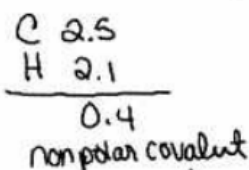 C 2.5
H 2.1
0.4
nonpolar covalent